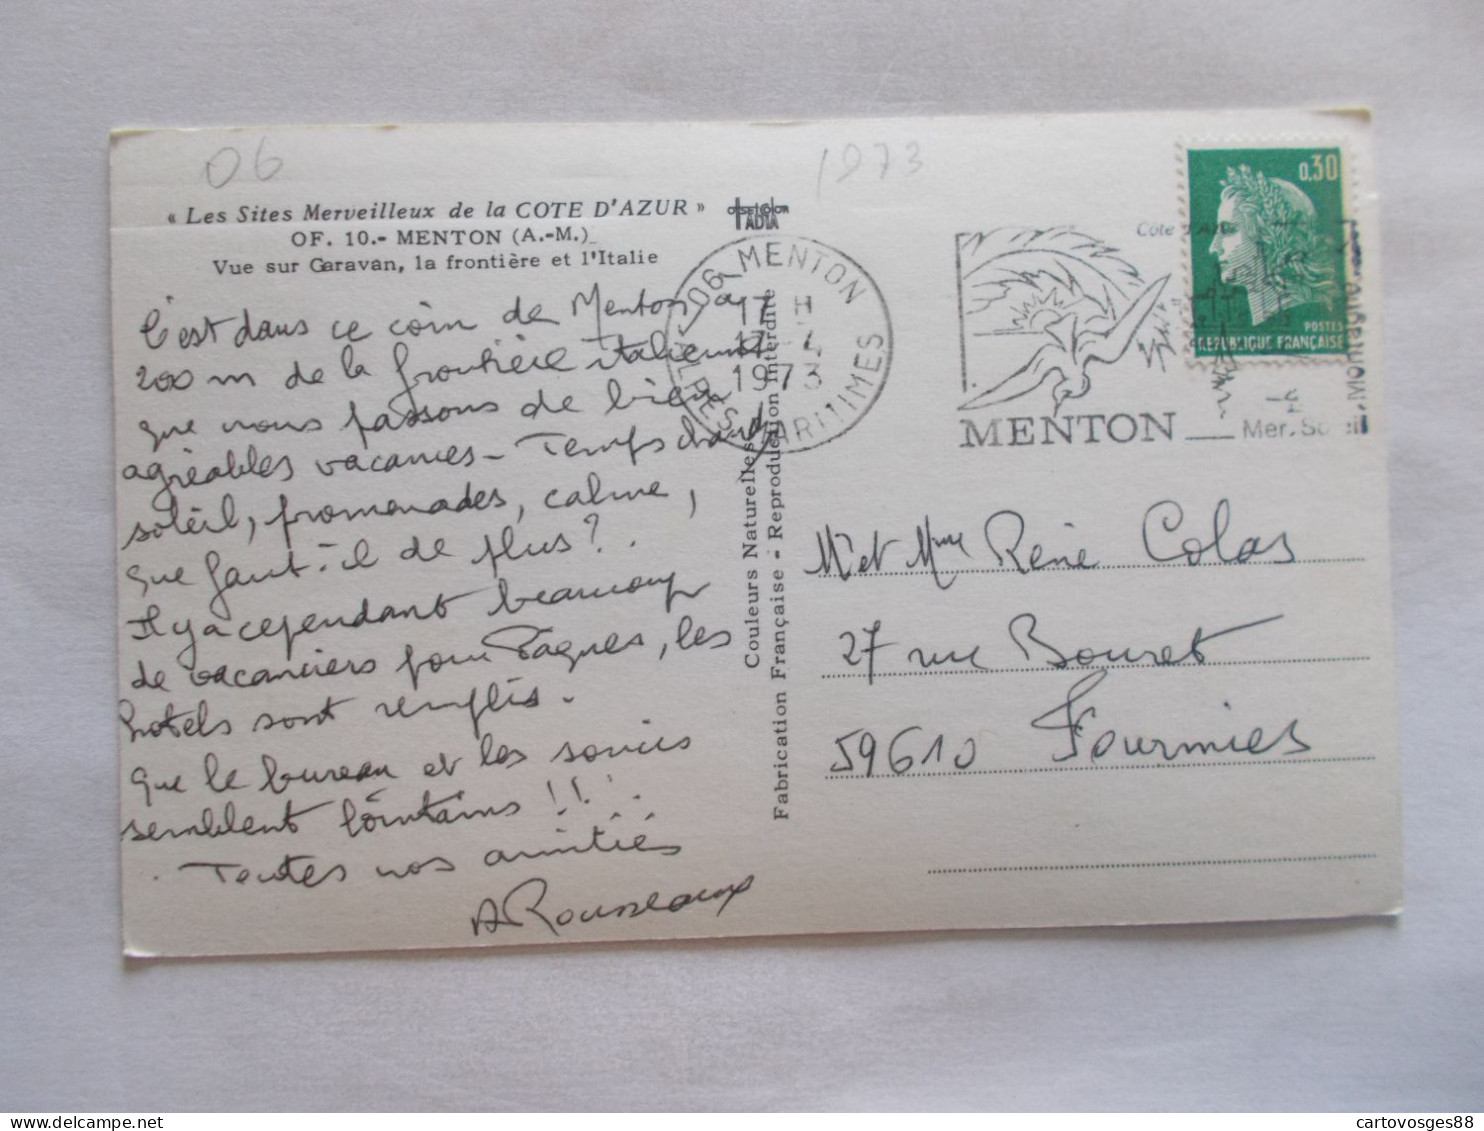 06
1973
« Les Sites Merveilleux de la COTE D'AZUR »
OF. 10.- MENTON (A.-M.)
Vue sur Garavan, la frontière et l'Italie
C'est dans ce coin de Menton à
200 m de la frontière italienne
que nous passons de bien
agréables vacances - Temps chaud
soleil, promenades, calme,
que faut-il de plus ?.
Il y a cependant beaucoup
de vacanciers pour Pâques, les
hotels sont remplis.
Que le bureau et les soucis
semblent lointains !!!
Toutes nos amitiés
A Rousseaux
offset color
TADIA
06 MENTON
17 H
17 - 4
1973
ALPES MARITIMES
Couleurs Naturelles
Fabrication Française - Reproduction Interdite
Côte d'Azur
MENTON
Mer. Soleil. Montagne
0,30
POSTES
REPUBLIQUE FRANÇAISE
Mr et Mme René Colas
27 rue Bouret
59610 Fourmies
cartovosges88